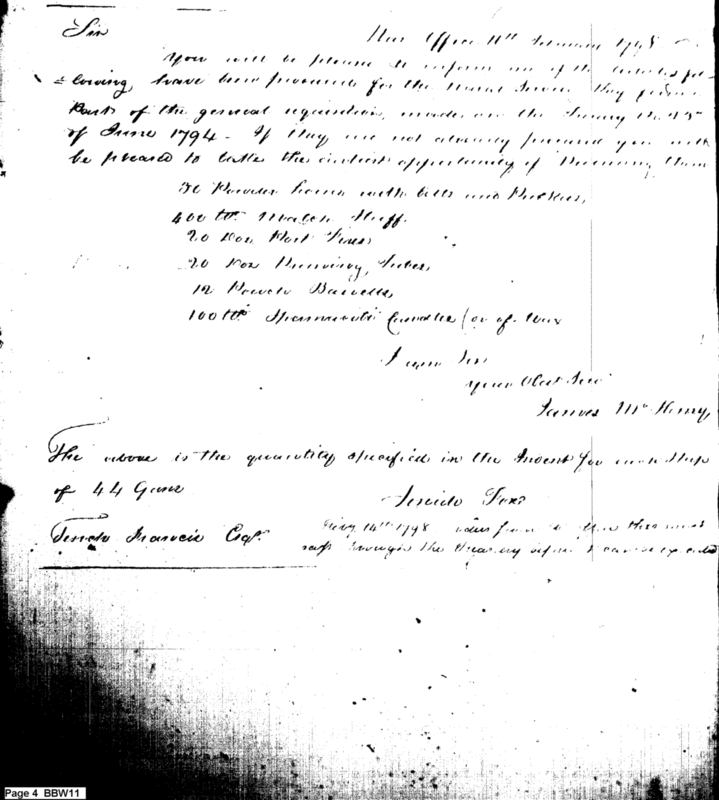 Sir
War Office 11th February 1798
You will be pleased to inform me if the articles fol
=lowing, have been procured for the Naval Service. They form a
Part of the general requisition, made on the Treasury the
of June 1794 - If they are not already procured you will
be pleased to take the earliest opportunity of Procuring them
50 Powder horns with belts and Buckles,
400 lbs. Match Stuff
20 Doz Port Fires
20 Doz Priming Tubes
12 Powder Barrells,
100 lbs Spermaciti Candles (or of Wax
I am Sir
your Obet Serv
James McHenry,
The above is the quantity specified in the Indent for each Ship
of 44 Guns
Josiah Fox
Tench Francis Esqr.
Feby 14th 1798 this must
pass through the Treasury before it can be executed
Page 4 BBW11